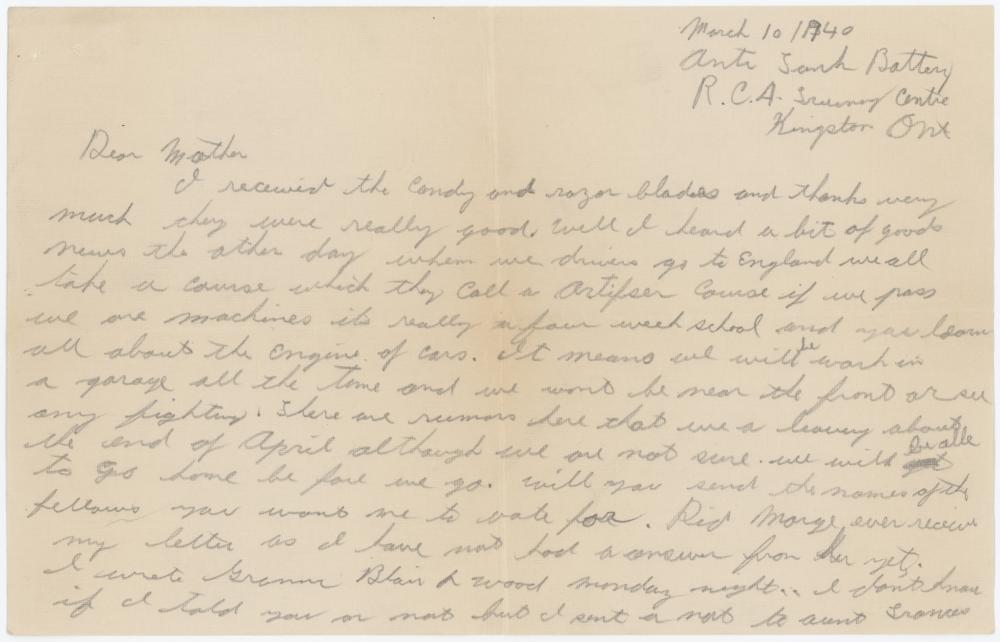 March 10/1940
Anti Tank Battery
R.C.A. Training Centre
Kingston Ont
Dear Mother
I received the candy and razor blades and thanks very
much they were really good. Well I heard a bit of goods
news the other day when we drivers go to England we all
take a course which they call a Artifser Course if we pass
we are machines its really a four week school and you learn
all about the engine of cars. It means we will be work in
a garage all the time and we wont be near the front or see
any fighting. There are rumors here that we a leaving about
the end of April although we are not sure. we will be able
to go home be fore we go. Will you send the names of the
fellows you want me to vote for. Did Marge ever receive
my letter as I have not had a answer from her yet.
I wrote Granm Blair & Wood monday night.. I don't know
if I told you or not but I sent a not to aunt Frances